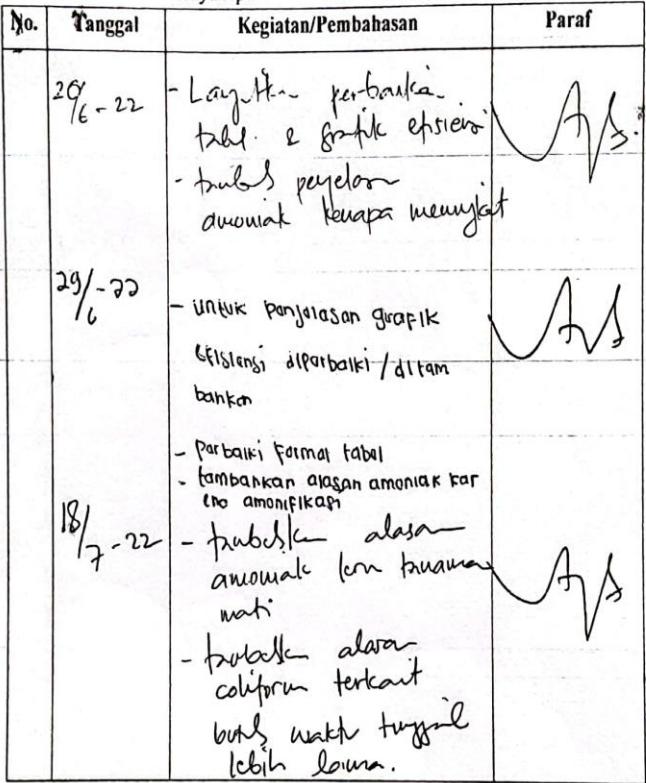 No. Tanggal Kegiatan/Pembahasan Paraf
20/6-22 - Lanjutkan perbaikan
tabel & grafik efisiensi
- penjelasan
amoniak kenapa meningkat
29/6-22
- untuk penjelasan grafik
efisiensi diperbaiki / ditam
bahkan
- Perbaiki format tabel
- tambahkan alasan amoniak kar
ena amonifikasi
18/7-22 - alasan
amoniak tanaman
mati
- alasan
coliform terkait
butuh waktu tinggal
lebih lama.